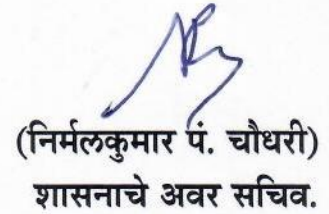 (निर्मलकुमार पं. चौधरी)
शासनाचे अवर सचिव.